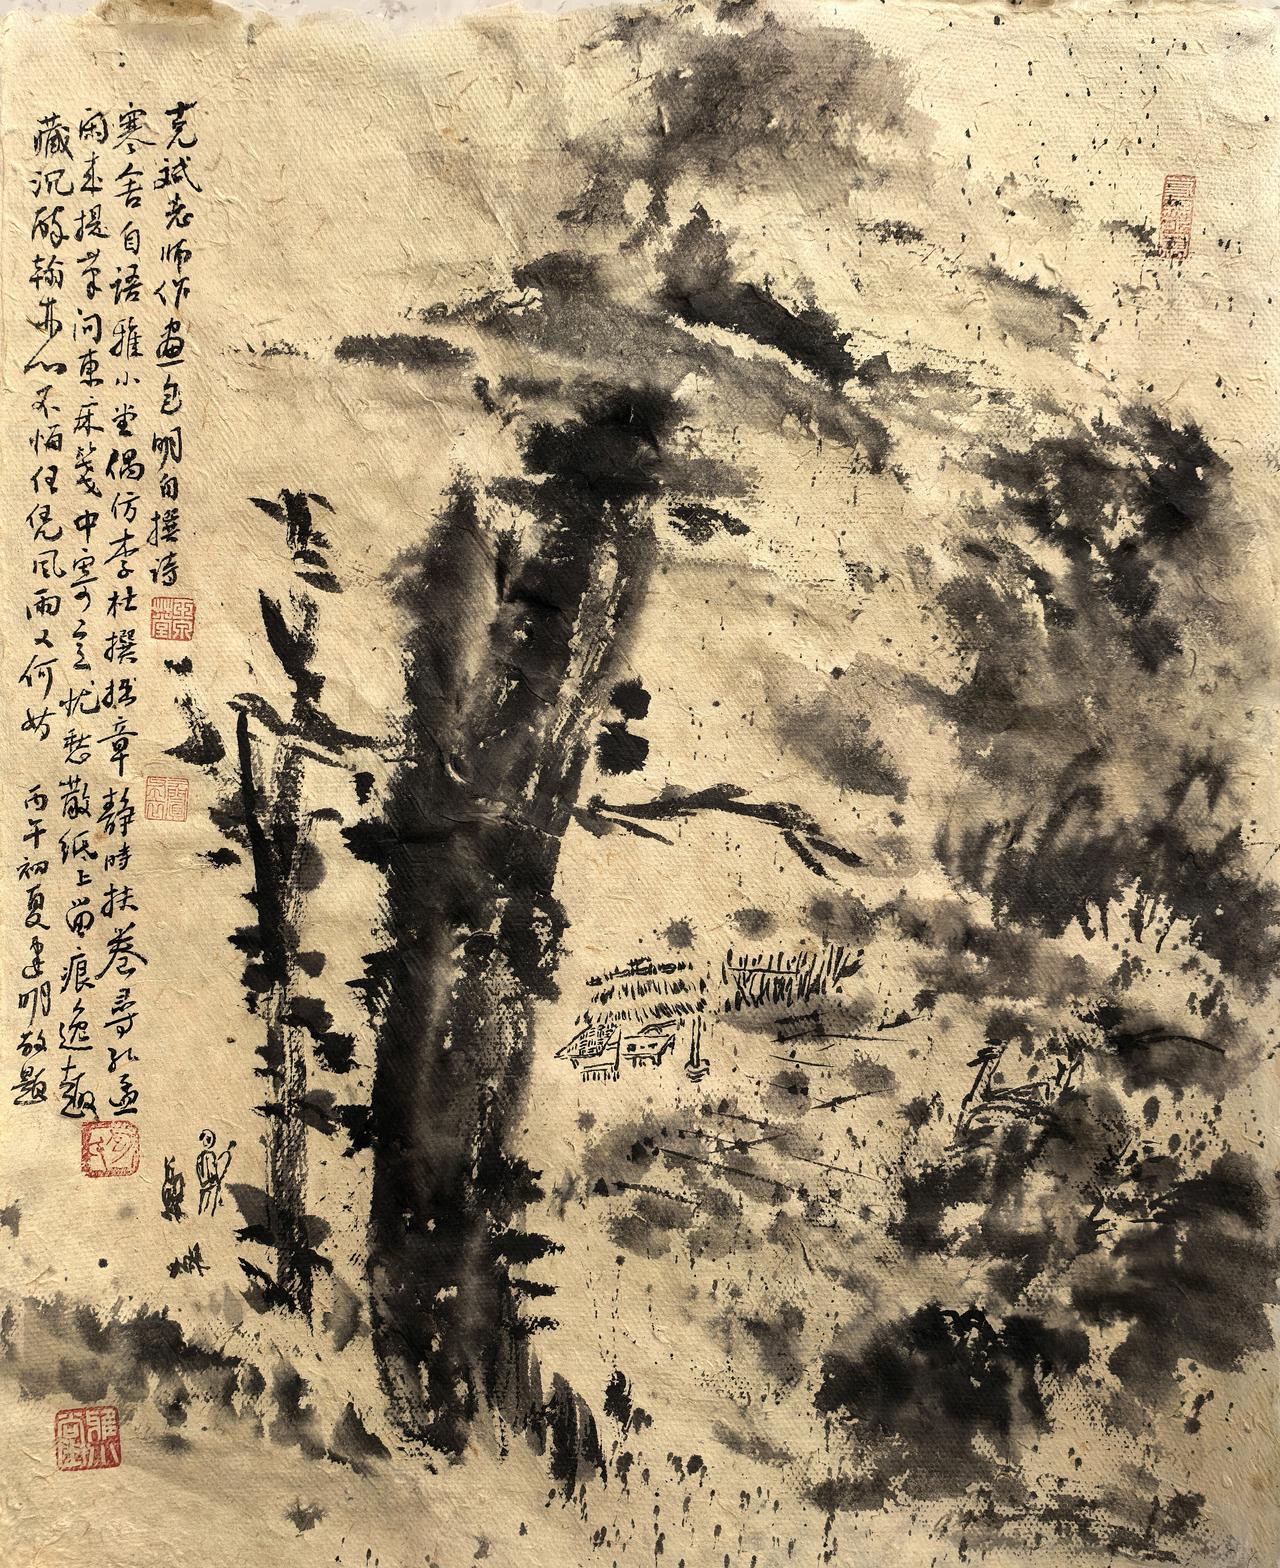 克斌老师作画包明自撰诗
寒舍自语雅小堂偶仿李杜撰拙章静时扶卷寻孔孟
闲来提笔问东床笺中寄意忧愁散纸上留痕逸趣
藏沉醉翰墨心不悔任凭风雨又何妨 丙午初夏建明敬题